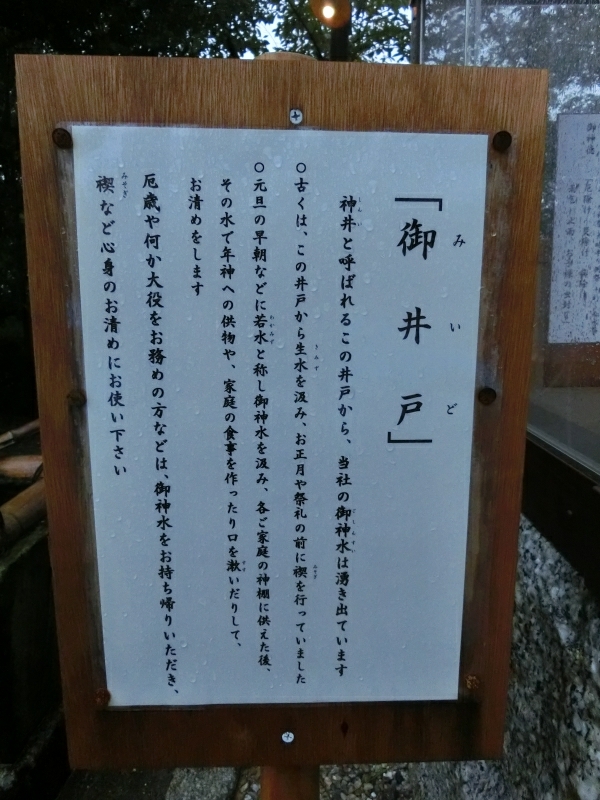 「御井戸」
みいど
神井と呼ばれるこの井戸から、当社の御神水は湧き出ています
○古くは、この井戸から生水を汲み、お正月や祭礼の前に禊を行っていました
きみず
みそぎ
○元旦の早朝などに若水と称し御神水を汲み、各ご家庭の神棚に供えた後、
わかみず
その水で年神への供物や、家庭の食事を作ったり口を漱いだりして、
お清めをします
厄歳や何か大役をお務めの方などは、御神水をお持ち帰りいただき、
禊など心身のお清めにお使い下さい
みそぎ